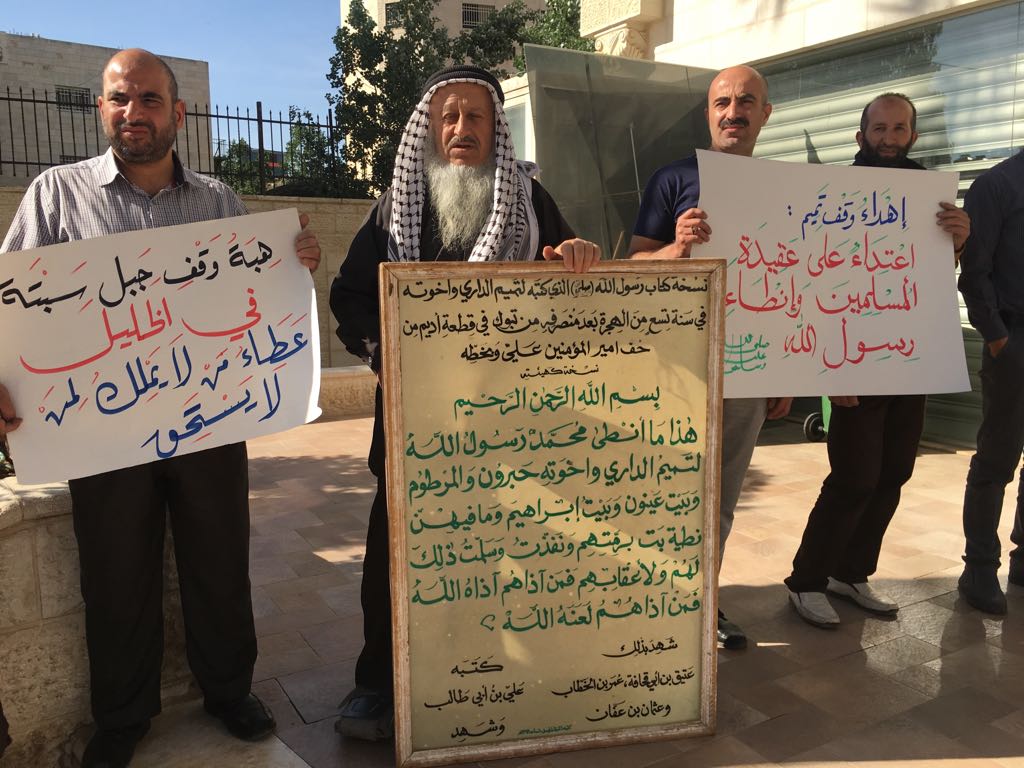 هِبَةُ وَقْفِ جَبل سِبْتَة
في الخَليل
عَطَاءُ مَنْ لَا يَمْلِكُ لِمَنْ
لا يَسْتَحِق
نسخة كتاب رسول الله (صلعم) الذي كتبه لتميم الداري وأخوته
في سنة تسع من الهجرة بعد منصرفه من تبوك في قطعة أديم من
خف أمير المؤمنين علي وبخطه
نسخة كهيئته
بسم الله الرحمن الرحيم
هذا ما أنطى محمد رسول الله
لتميم الداري واخوته حبرون والمرطوم
وبيت عينون وبيت إبراهيم وما فيهن
نطية بت برمتهم ونفذت وسلمت ذلك
لهم ولأعقابهم فمن آذاهم آذاه الله
فمن آذاهم لعنه الله
شهد بذلك
عتيق بن أبي قحافة، عمر بن الخطاب
وعثمان بن عفان
كتبه
علي بن أبي طالب
وشهد
إهداءُ وَقف تَميم :
اعتداءٌ على عقيدة
المسلمين وإنطاءِ
رسولِ الله
صلى الله
عليه
وسلم